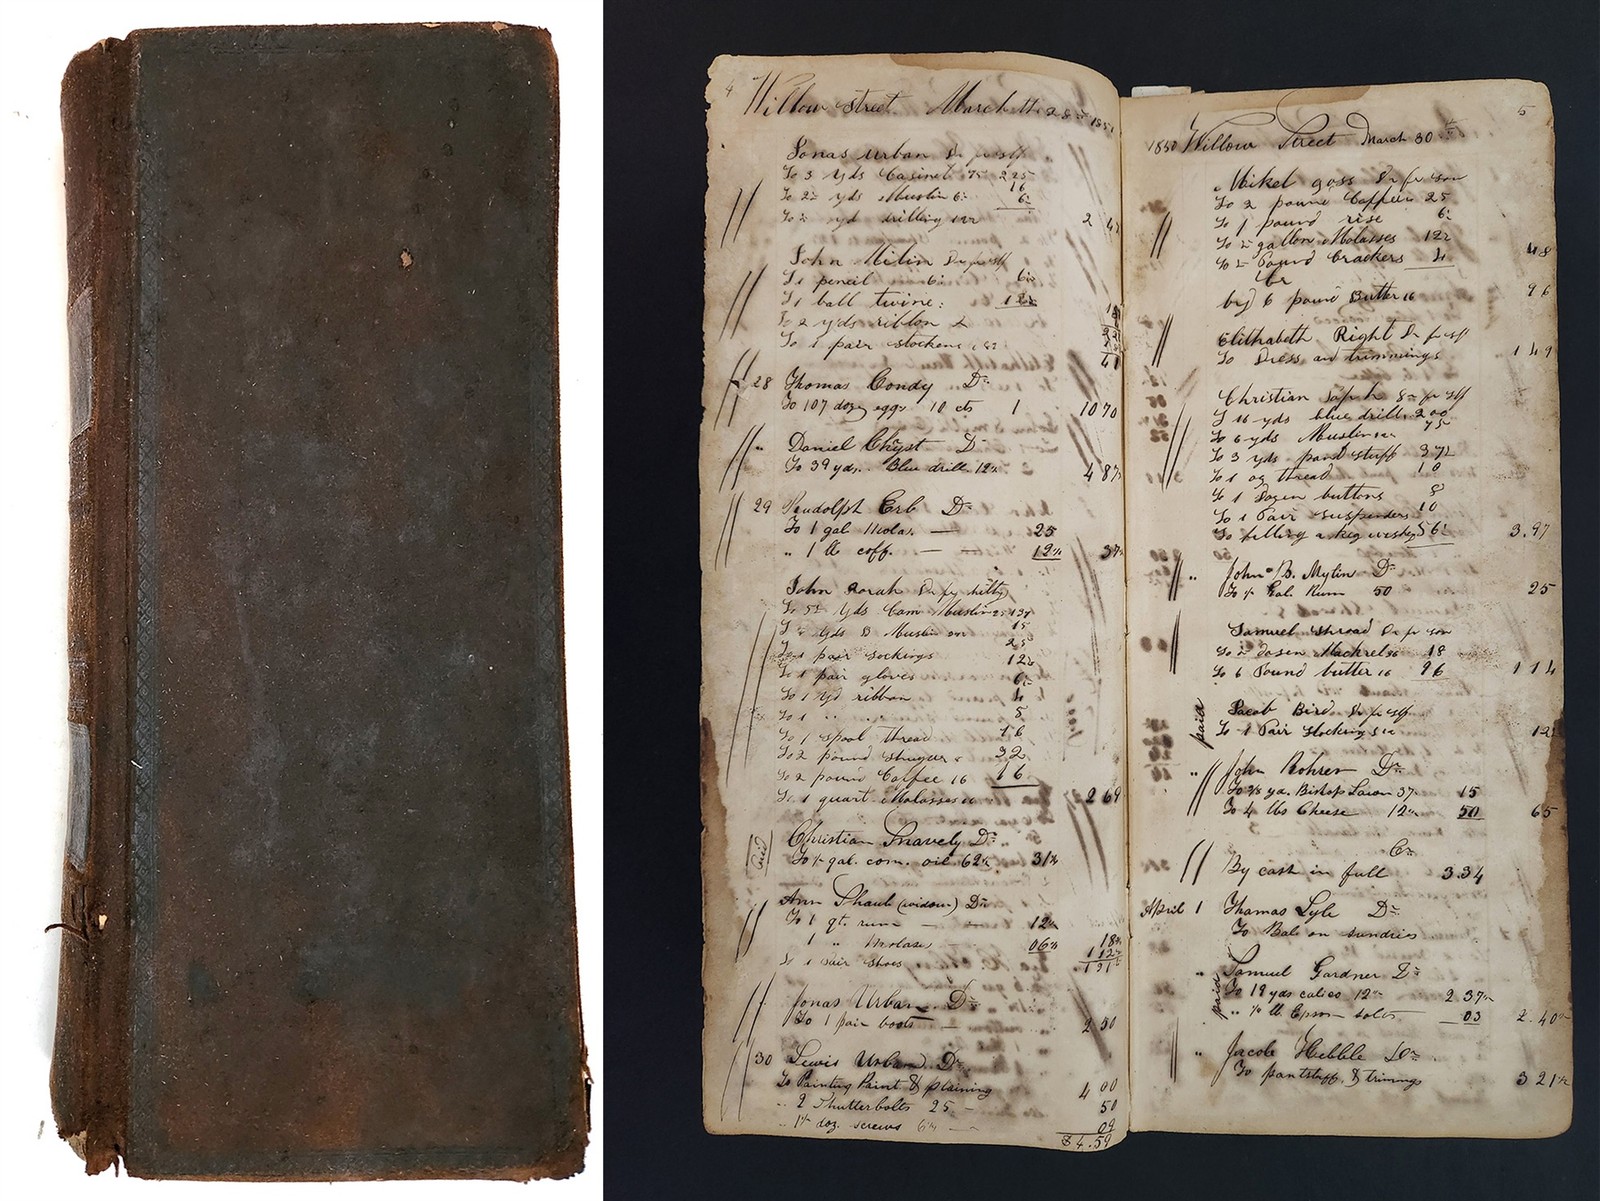 4 Willow Street March the 28th 1850
Jonas Urban Dr for self
To 3 yds Casinet 75 2 25
To 2½ yds Muslin 6¼ 16
To ½ yd drilling 12½ 6¼ 2 4
John Milin Dr for self
To 1 pencil 6¼ 6¼
To 1 ball twine 12½
To 2 yds ribbon
To 1 pair stockens
28 Thomas Condy Dr
To 107 dozen eggs 10 cts 10 70
" Daniel Chryst Dr
To 39 yds. Blue drill 12½ 4 87½
29 Rudolph Erb Dr
To 1 gal Molas. 25
" 1 lb coff. 12½ 37½
John Rorah Dr for kitty
To 5½ yds Cam Muslin 25 137
To yds B Muslin 15
To 1 pair sockings 25
To 1 pair gloves 12½
To 1 yd ribbon 6¼
To 1 " " 4
To 1 spool thread 5
To 2 pound shugar 16
To 2 pound Coffee 16 32
To 1 quart Molasses 16 2 69
paid
Christian Snavely Dr
To ½ gal. com. oil 62½ 31¼
Ann Shaub (widow) Dr
To 1 qt. rum 12½
1 " Molases 06¼ 18¾
To 1 pair shoes 1 12½
1 31
Jonas Urban Dr
To 1 pair boots 2 50
30 Lewis Urban Dr
To Painting Paint & plaining 4 00
" 2 Shutterbolts 25 50
" 1½ doz. screws 6¼ 09
$4.59
5
1850 Willow Street March 30th
Mikel goss Dr for son
To 2 pound Coffee 25
To 1 pound rise 6¼
To ½ gallon Molasses 12½
To ½ Pound Crackers 4 48
Cr
by 6 pound Butter 16 96
Elithabeth Right Dr for self
To Dress and trimmings 1 49
Christian Dr for self
To 16 yds blue drill 2 00
To 6 yds Muslin 12½ 75
To 3 yds pand stuff 37½
To 1 oz thread 10
To 1 Dozen buttons 8
To 1 Pair suspenders 10
To filling a keg wiskey 56¼ 3.97
" John B. Mylin Dr
To ½ Gal. Rum 50 25
Samuel shroad Dr for son
To ½ dosen Mackrel 36 18
To 6 Pound butter 16 96 1 14
paid
Jacob Bird Dr for self
To 1 Pair stockings 12½
" John Rohrer Dr
To ya. Bishop Lawn 37½ 15
To 4 lbs Cheese 12½ 50 65
Cr
By cash in full 3.34
April 1 Thomas Lyle Dr
To Bal. on sundries
paid
" Samuel Gardner Dr
To 19 yds calico 12½ 2 37½
" ¼ lb Epsom salts 03 2.40½
" Jacob Hebble Dr
To pantstuff & trimings 3 21½